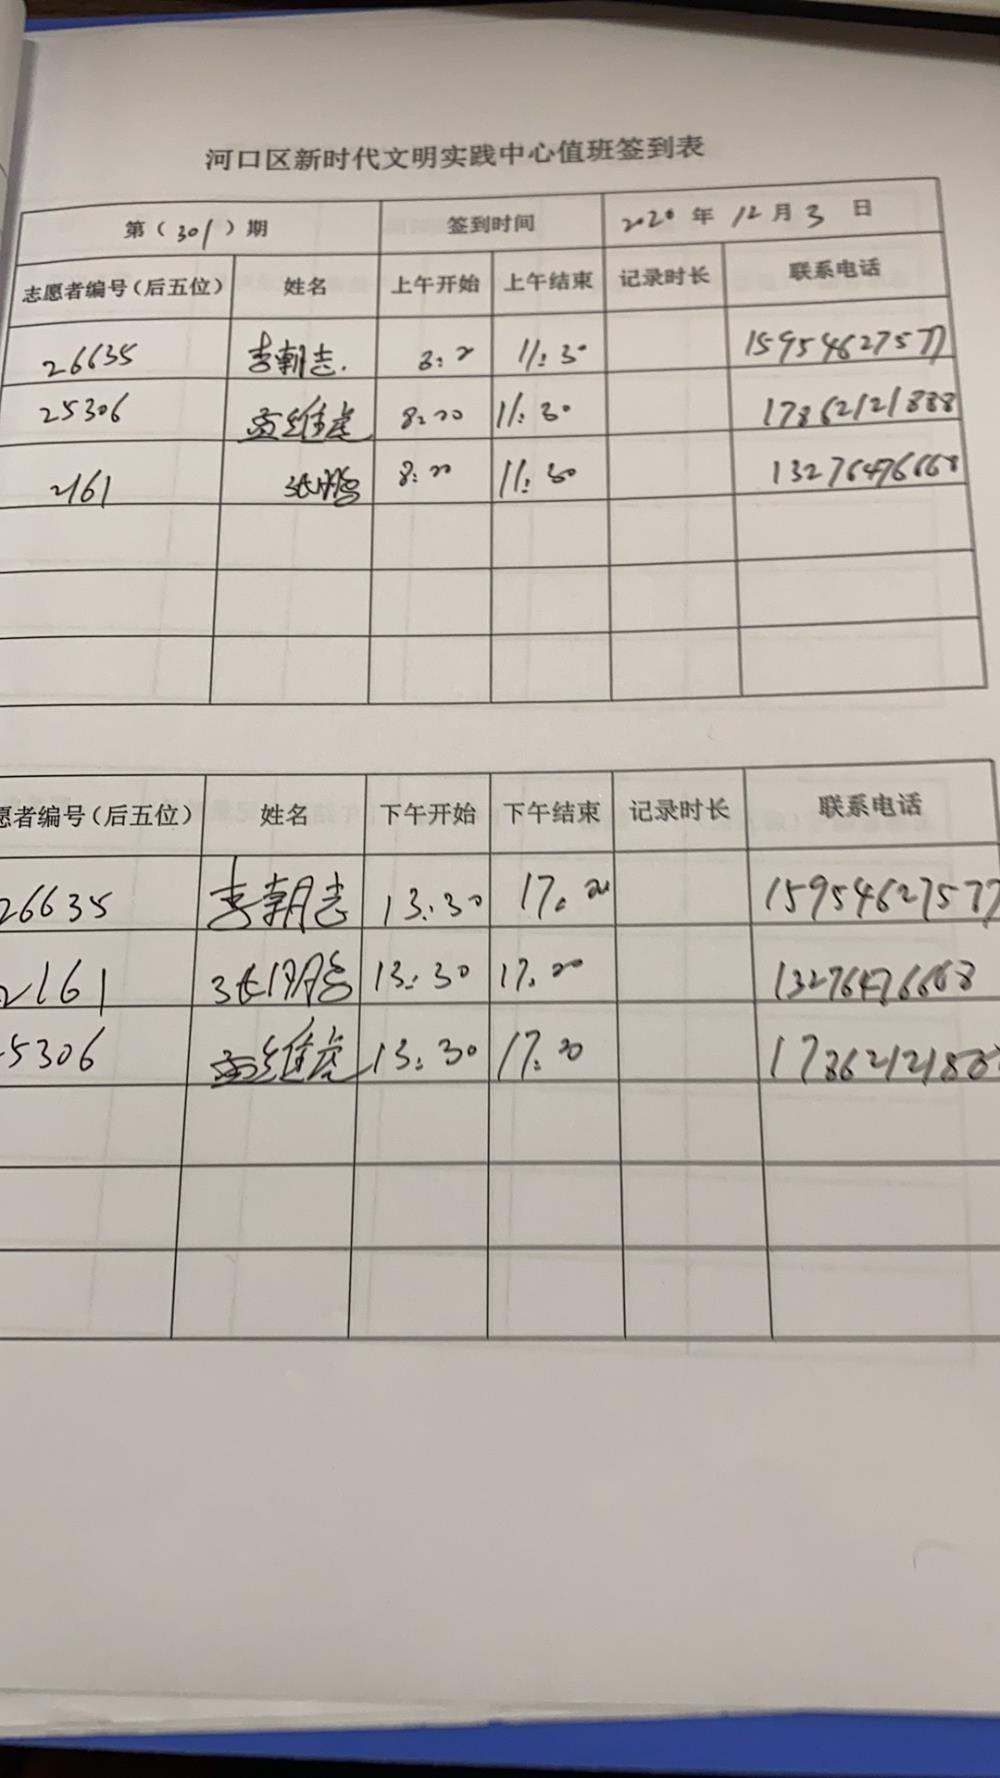 河口区新时代文明实践中心值班签到表
第（301）期 签到时间 2020 年 12 月 3 日
志愿者编号（后五位） 姓名 上午开始 上午结束 记录时长 联系电话
26635 李朝志 11:30 15954627577
25306 孟维虎 8:00 11:30 17862121888
2161 张鹏 8:00 11:30 13276476668
愿者编号（后五位） 姓名 下午开始 下午结束 记录时长 联系电话
26635 李朝志 13:30 17:00 15954627577
2161 张鹏 13:30 17:00 13276476668
5306 孟维虎 13:30 17:00